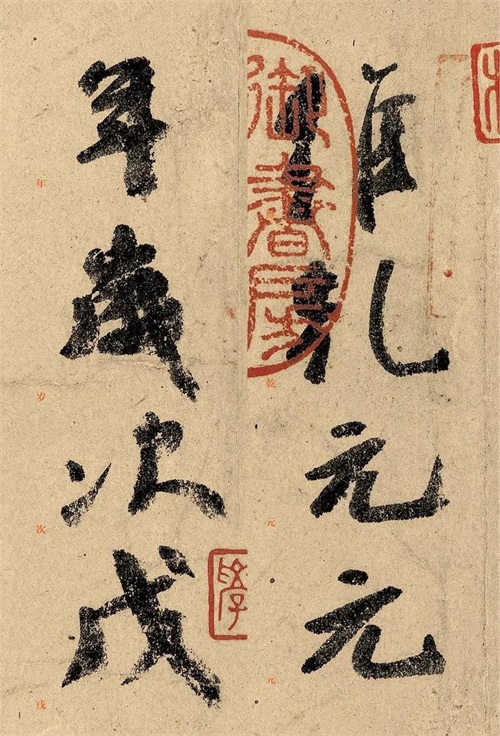 維乾元元
乾元元
御書房
年歲次戊
年岁次戊